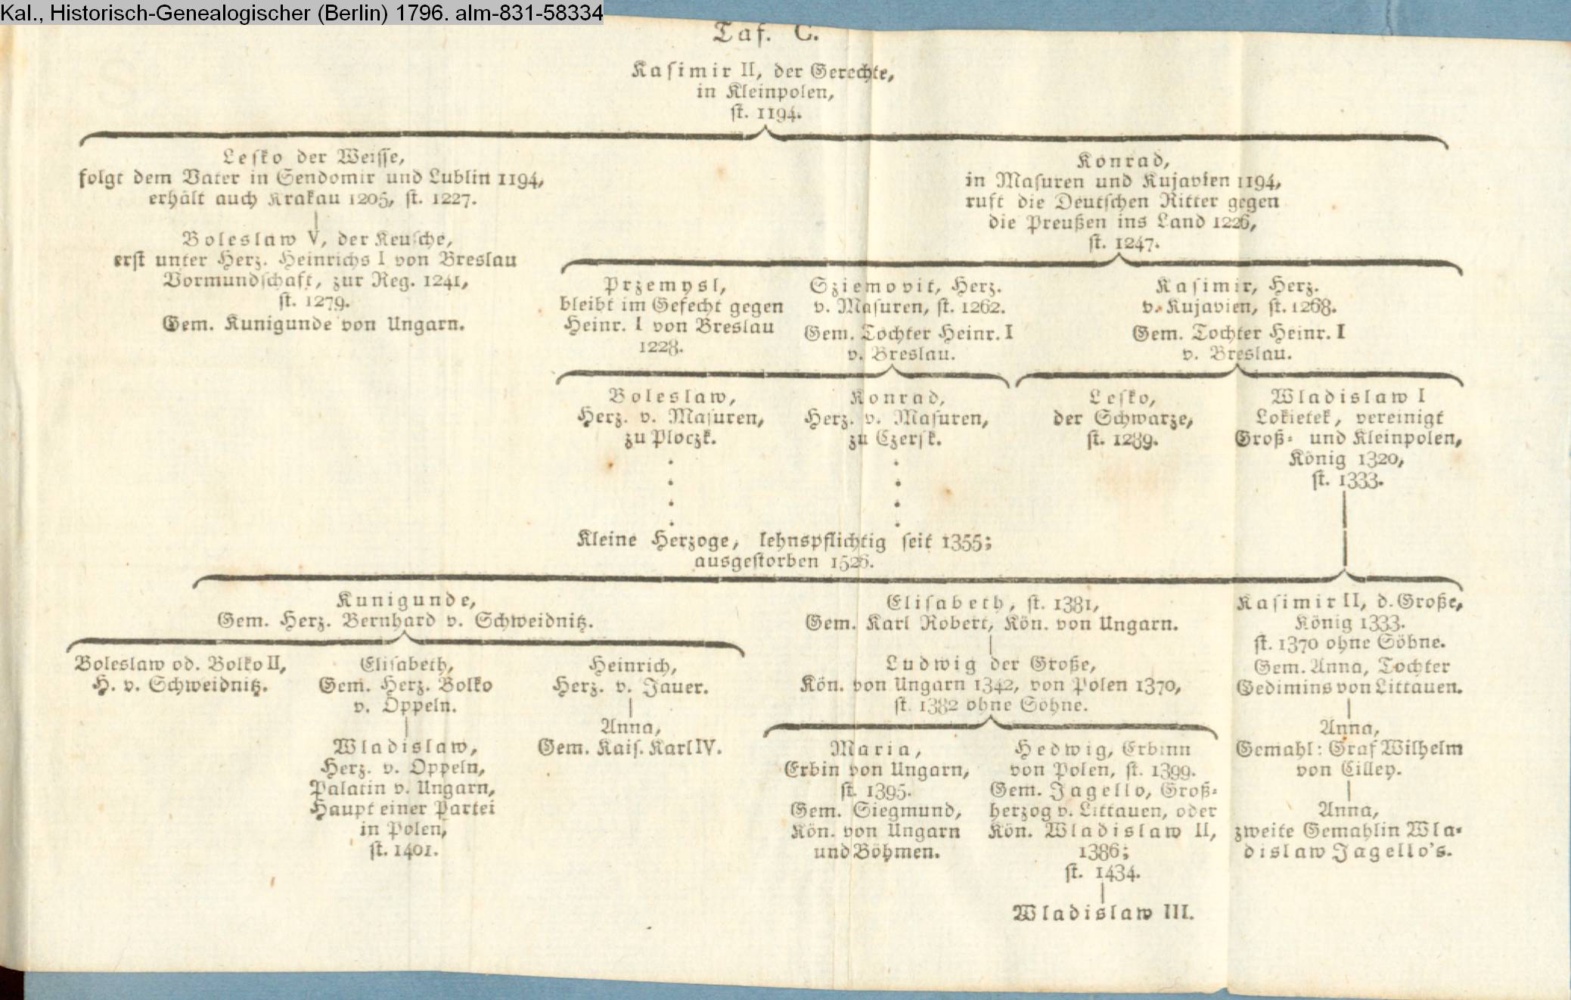 Kal., Historisch-Genealogischer (Berlin) 1796. alm-831-58334
Taf. C.
Kasimir II, der Gerechte,
in Kleinpolen,
st. 1194.
Lesko der Weisse,
folgt dem Vater in Sendomir und Lublin 1194,
erhält auch Krakau 1205, st. 1227.
Boleslaw V, der Keusche,
erst unter Herz. Heinrichs I von Breslau
Vormundschaft, zur Reg. 1241,
st. 1279.
Gem. Kunigunde von Ungarn.
Konrad,
in Masuren und Kujavien 1194,
ruft die Deutschen Ritter gegen
die Preußen ins Land 1226,
st. 1247.
Przemysl,
bleibt im Gefecht gegen
Heinr. I von Breslau
1228.
Sziemovit, Herz.
v. Masuren, st. 1262.
Gem. Tochter Heinr. I
v. Breslau.
Kasimir, Herz.
v. Kujavien, st. 1268.
Gem. Tochter Heinr. I
v. Breslau.
Boleslaw,
Herz. v. Masuren,
zu Ploczk.
Konrad,
Herz. v. Masuren,
zu Czersk.
Lesko,
der Schwarze,
st. 1289.
Wladislaw I
Lokietek, vereinigt
Groß- und Kleinpolen,
König 1320,
st. 1333.
Kleine Herzoge, lehnspflichtig seit 1355;
ausgestorben 1526.
Kunigunde,
Gem. Herz. Bernhard v. Schweidnitz.
Boleslaw od. Bolko II,
H. v. Schweidnitz.
Elisabeth,
Gem. Herz. Bolko
v. Oppeln.
Wladislaw,
Herz. v. Oppeln,
Palatin v. Ungarn,
Haupt einer Partei
in Polen,
st. 1401.
Heinrich,
Herz. v. Jauer.
Anna,
Gem. Kais. Karl IV.
Elisabeth, st. 1381,
Gem. Karl Robert, Kön. von Ungarn.
Ludwig der Große,
Kön. von Ungarn 1342, von Polen 1370,
st. 1382 ohne Söhne.
Maria,
Erbin von Ungarn,
st. 1395.
Gem. Siegmund,
Kön. von Ungarn
und Böhmen.
Hedwig, Erbinn
von Polen, st. 1399.
Gem. Jagello, Groß-
herzog v. Littauen, oder
Kön. Wladislaw II,
1386;
st. 1434.
Wladislaw III.
Kasimir II, d. Große,
König 1333.
st. 1370 ohne Söhne.
Gem. Anna, Tochter
Gedimins von Littauen.
Anna,
Gemahl: Graf Wilhelm
von Cilley.
Anna,
zweite Gemahlin Wla-
dislaw Jagello's.